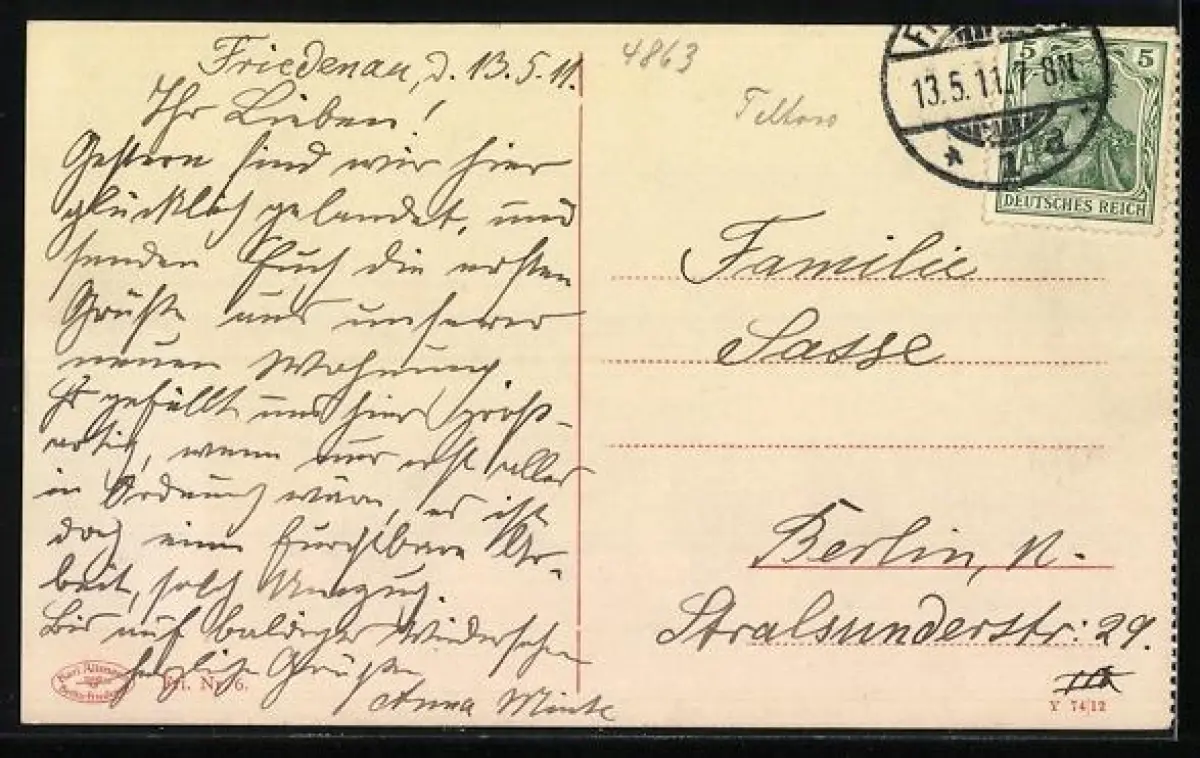 Friedenau, d. 13.5.11.
Ihr Lieben!
Gestern sind wir hier
glücklich gelandet, und
senden Euch die ersten
Grüße aus unserer
neuen Wohnung
Es gefällt uns hier groß-
artig, wenn nur erst alles
in Ordnung wäre, es ist
doch eine furchtbare Ar-
beit, solch Umzug.
Bis auf baldiges Wiedersehn
herzliche Grüße
Anna
Nr. 6.
4863
Teltow
13.5.11. 7-8N
* 1 a
5 5
DEUTSCHES REICH
Familie
Sasse
Berlin, N.
Stralsunderstr: 29.
Y 74/12